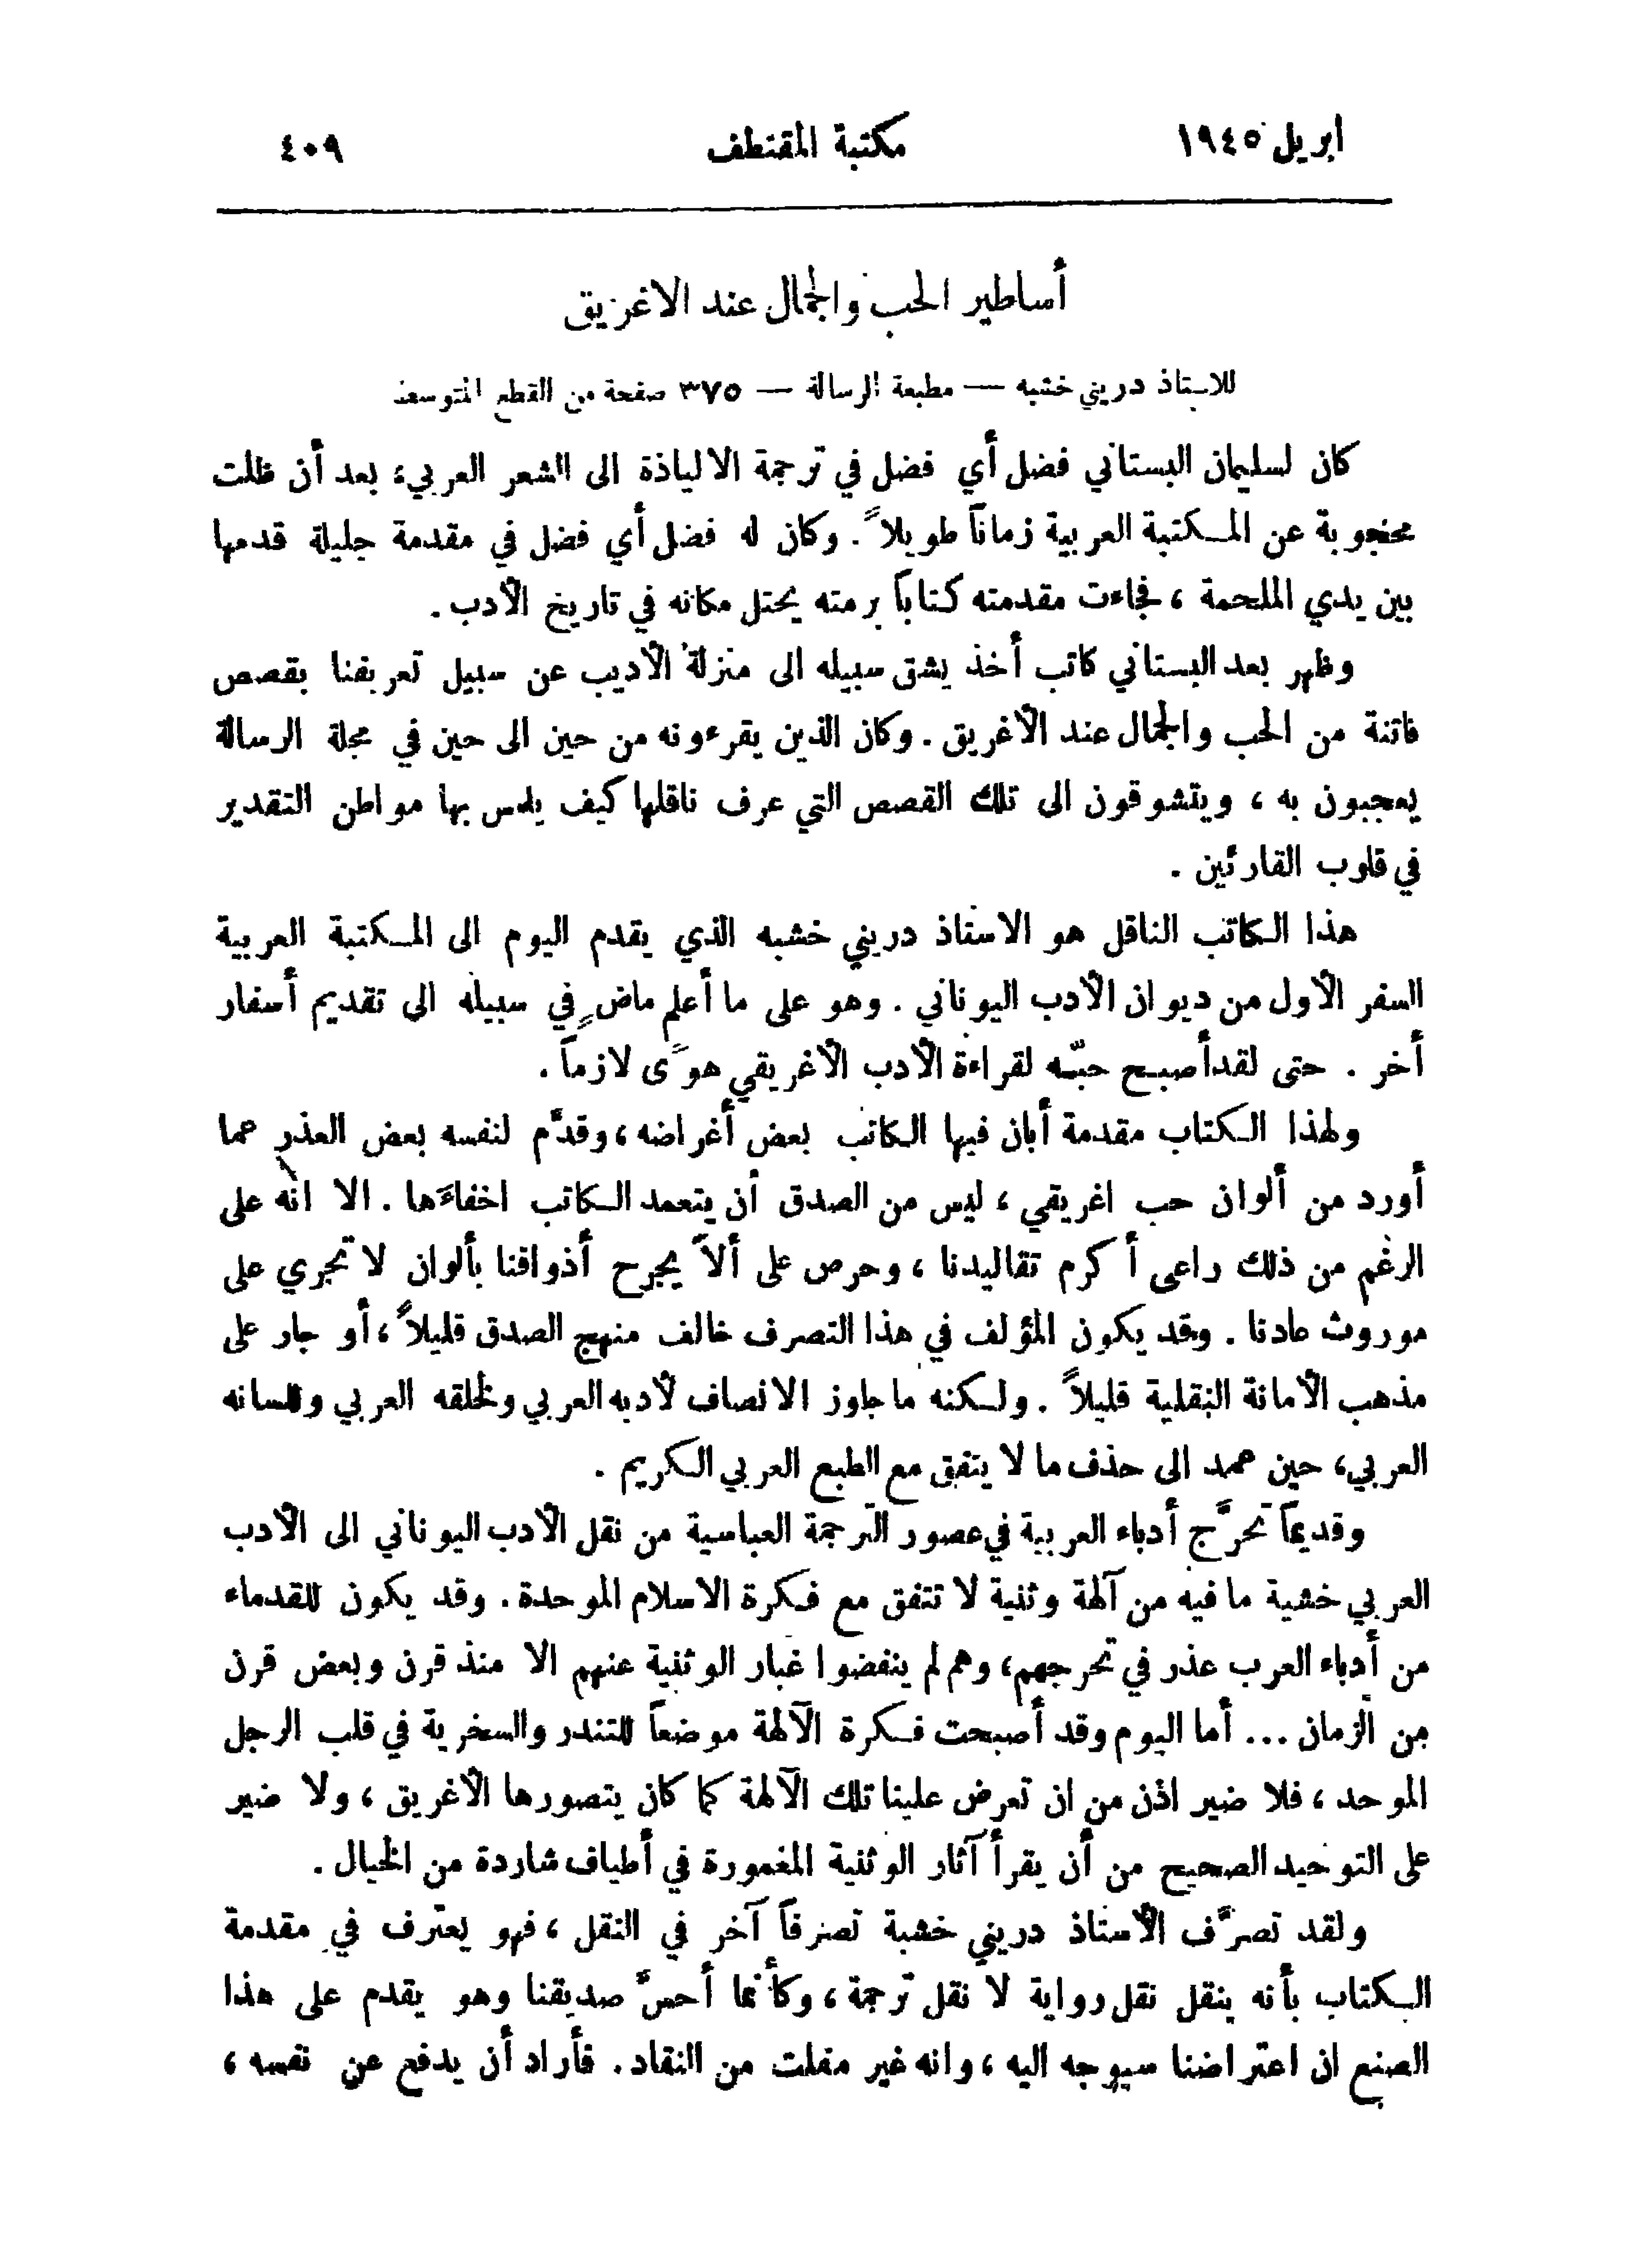 ابريل ١٩٤٥ مكتبة المقتطف ٤٠٩
أساطير الحب والجمال عند الاغريق
للاستاذ دريني خشبه — مطبعة الرسالة — ٣٧٥ صفحة من القطع المتوسط
كان لسليمان البستاني فضل أي فضل في ترجمة الالياذة الى الشعر العربي، بعد أن ظلت
محجوبة عن المكتبة العربية زماناً طويلاً. وكان له فضل أي فضل في مقدمة جليلة قدمها
بين يدي الملحمة، فجاءت مقدمته كتاباً برمته يحتل مكانه في تاريخ الأدب.
وظهر بعد البستاني كاتب أخذ يشق سبيله الى منزلة الأديب عن سبيل تعريفنا بقصص
فاتنة من الحب والجمال عند الأغريق. وكان الذين يقرءونه من حين الى حين في مجلة الرسالة
يعجبون به، ويتشوقون الى تلك القصص التي عرف ناقلها كيف يلمس بها مواطن التقدير
في قلوب القارئين.
هذا الكاتب الناقل هو الاستاذ دريني خشبه الذي يقدم اليوم الى المكتبة العربية
السفر الأول من ديوان الأدب اليوناني. وهو على ما أعلم ماضٍ في سبيله الى تقديم أسفار
أخر. حتى لقد أصبح حبّه لقراءة الأدب الأغريقي هوًى لازماً.
ولهذا الكتاب مقدمة أبان فيها الكاتب بعض أغراضه، وقدَّم لنفسه بعض العذر عما
أورد من ألوان حب اغريقي، ليس من الصدق أن يتعمد الكاتب اخفاءَها. الا انه على
الرغم من ذلك راعى أكرم تقاليدنا، وحرص على ألاّ يجرح أذواقنا بألوان لا تجري على
موروث عادنا. وقد يكون المؤلف في هذا التصرف خالف منهج الصدق قليلاً، أو جار على
مذهب الأمانة النقلية قليلاً. ولكنه ما جاوز الانصاف لأدبه العربي ولخلقه العربي وللسانه
العربي، حين عمد الى حذف ما لا يتفق مع الطبع العربي الكريم.
وقديماً تحرَّج أدباء العربية في عصور الترجمة العباسية من نقل الأدب اليوناني الى الأدب
العربي خشية ما فيه من آلهة وثنية لا تتفق مع فكرة الاسلام الموحدة. وقد يكون للقدماء
من أدباء العرب عذر في تحرجهم، وهم لم ينفضوا غبار الوثنية عنهم الا منذ قرن وبعض قرن
من الزمان ... أما اليوم وقد أصبحت فكرة الآلهة موضعاً للتندر والسخرية في قلب الرجل
الموحد، فلا ضير اذن من ان تعرض علينا تلك الآلهة كما كان يتصورها الأغريق، ولا ضير
على التوحيد الصحيح من أن يقرأ آثار الوثنية المغمورة في أطياف شاردة من الخيال.
ولقد تصرَّف الأستاذ دريني خشبة تصرفاً آخر في النقل، فهو يعترف في مقدمة
الكتاب بأنه ينقل نقل رواية لا نقل ترجمة، وكأنما أحسَّ صديقنا وهو يقدم على هذا
الصنع ان اعتراضنا سيوجه اليه، وانه غير مفلت من النقاد. فأراد أن يدفع عن نفسه،